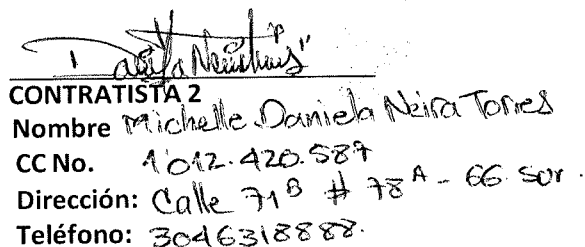 CONTRATISTA 2
Nombre Michelle Daniela Neira Torres
CC No. 1'012.420.587
Dirección: Calle 71B # 78A - 66 sur.
Teléfono: 3046318888.